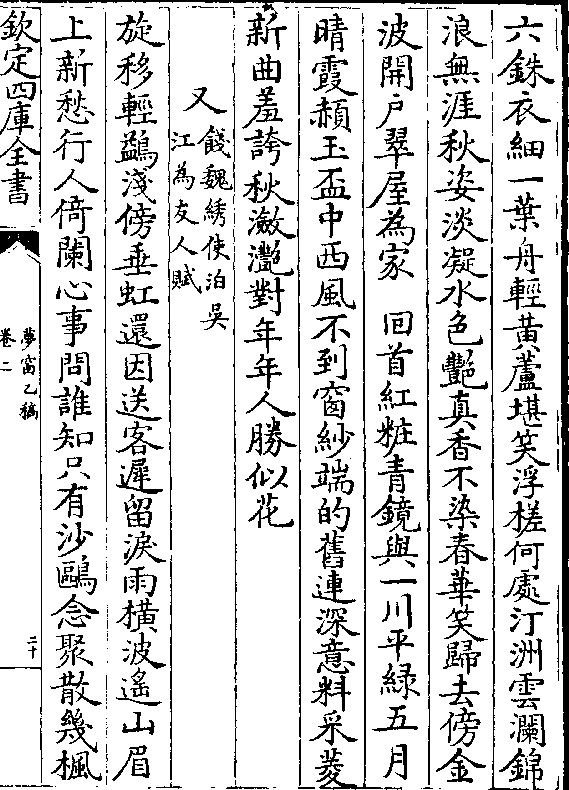 六銖衣細一葉舟輕黄蘆堪笑浮槎何處汀洲雲瀾錦
浪無涯秋姿淡凝水色艷真香不染春華笑歸去傍金
波開户翠屋為家　回首紅粧青鏡與一川平緑五月
晴霞赬玉盃中西風不到窗紗端的舊蓮深意料采菱
新曲羞誇秋瀲灩對年年人勝似花
又餞魏綉使泊吳
江為友人賦
旋移輕鷁淺傍垂虹還因送客遲留淚雨横波遙山眉
上新愁行人倚闌心事問誰知只有沙鷗念聚散幾楓
欽定四庫全書
夢窗乙稿
卷二
二十